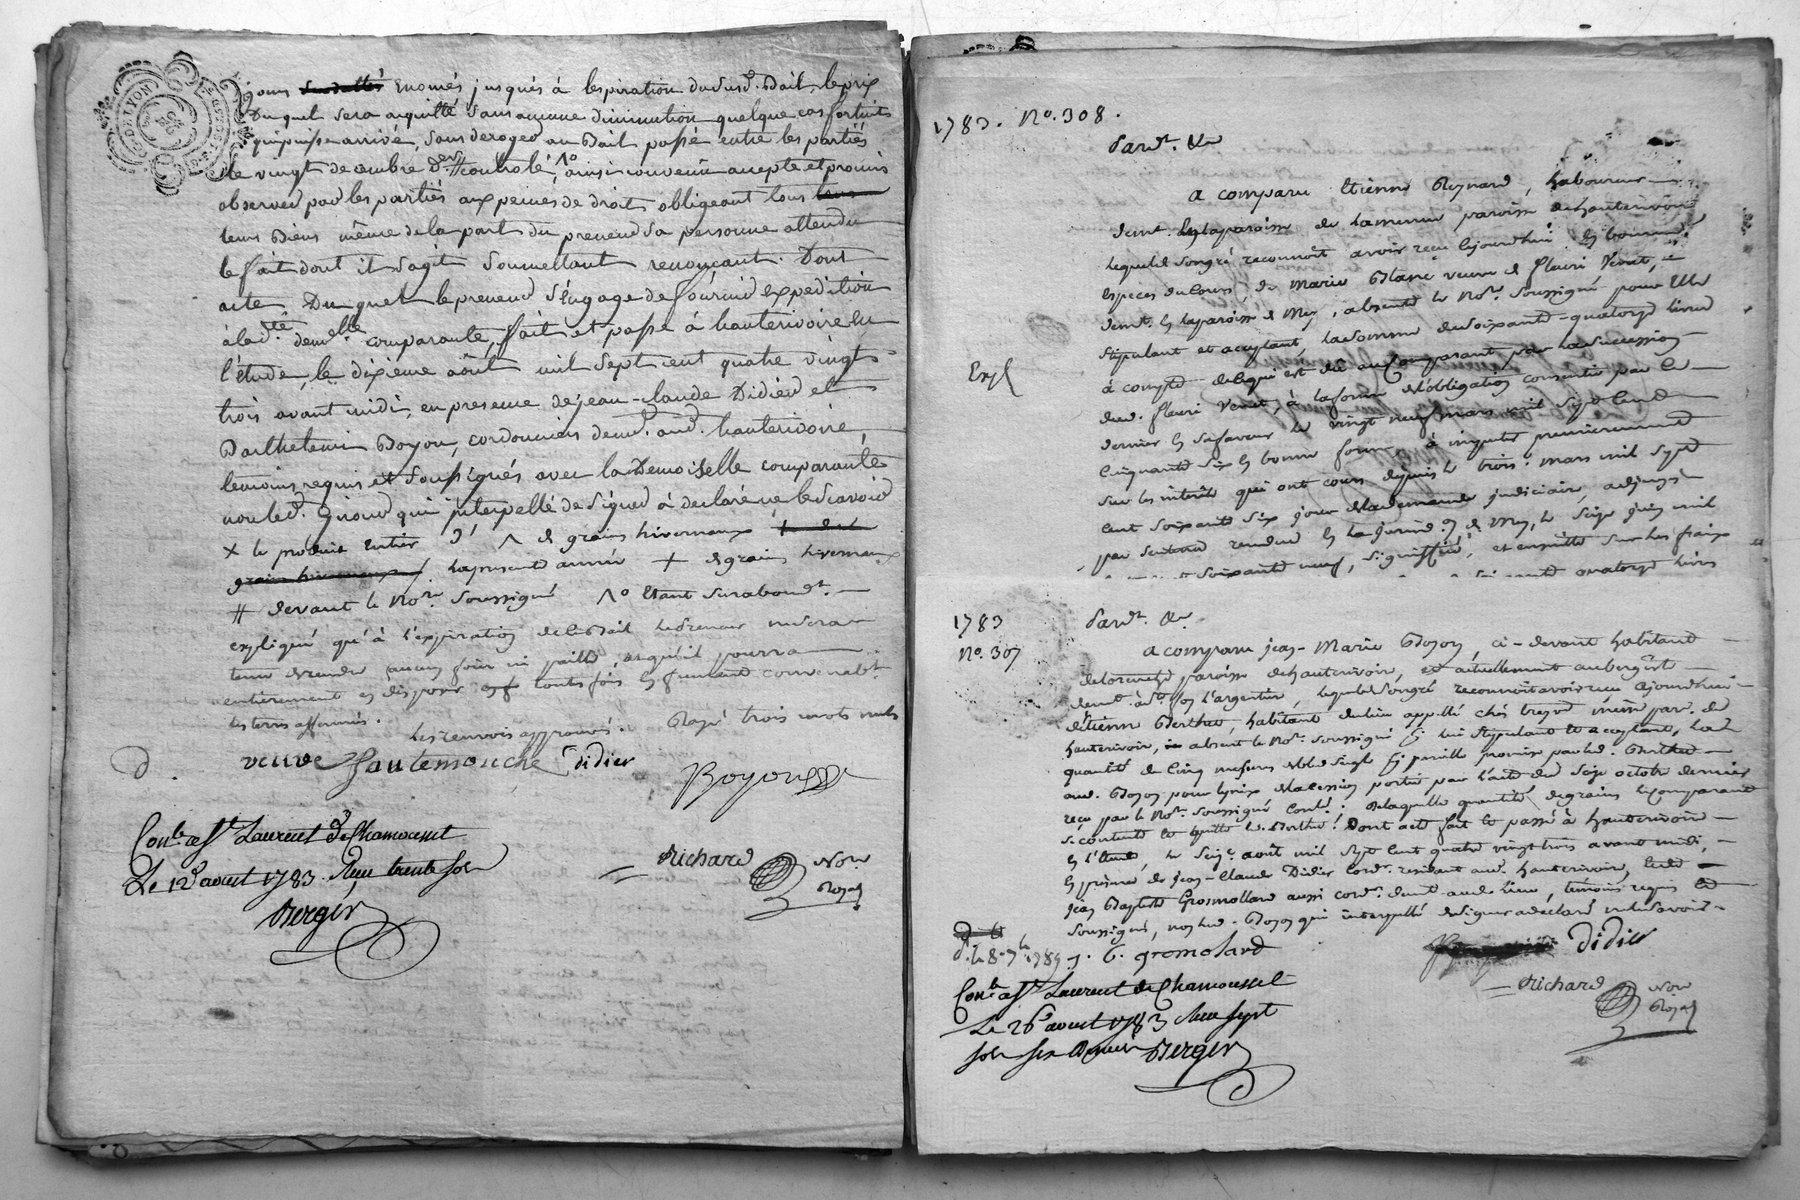 jours enomés jusqués à lespiration dususd. Bail, le prix
Duquel sera aquitté sans aucune diminution quelque cas fortuits
qui puisse arrivé, sans deroger au Bail passé entre les partiés
le vingt decembre der. controlé, ainsi convenu accepté et promis
observer par les partiés aux peines de droit obligeant tous
leurs Biens même de la part du preneur sa personne attendu
le fait dont il s'agit soumettant renonçant. Dont
acte Duquel le preneur s'engage de fournir expedition
à lade. demlle. comparante, fait et passé à hauterivoire en
l'étude, le dixième aôut mil sept cent quatre vingt
trois avant midi, en presence de jean-claude Didier et
Barthelemi Boyon, cordonniers demt. aud. hauterivoire,
temoins requis et soussignés avec la Demoiselle comparante
non led. Giroud qui interpellé de signer à declaré ne le scavoir
x le produit entier ^ de grains hivernaux
la presente année + de grains hivernaux
# devant le Nore. soussigné ^o Etant surabondt.
expliqué qu'à l'expiration de le Bail le preneur ne sera
tenu de rendre aucun foin ni paille, & qu'il pourra
entierement en disposer toutefois en fumant convenablt.
les terres affermés.
les renvois approuvés. Rayé trois mots nuls
D. veuve hautemouche didier
Boyon
Conlé a St Laurent de Chamousset
Le 12 aoust 1783. Reçu trente sols
Richard Nore
Royal
Berger
1783. No. 308.
Pardt. &c
a comparu Etienne Reynard, laboureur
demt. en la paroisse de hauterivoire
lequel de son gré reconnoît avoir reçu cejourdhui en bonnes
especes du cours, de Marie Blanc veuve de fleuri Venet,
demt. en la paroisse de Mey, absente le Nore. soussigné pour Elle
stipulant et acceptant, la somme de soixante-quatorze livres
à compte de ce qui est dû au comparant par la succession
Expé
dud. fleuri Venet, à la forme de l'obligation consentie par ce
dernier en sa faveur le vingt neuf mars mil sept cent
cinquante six en bonne forme, à imputer premierement
sur les interêts qui ont cours depuis le trois mars mil sept
cent soixante six jour de la demande judiciaire, adjugés
par sentence rendue en la juridon. de Mey, le seize juin mil
soixante neuf, signiffiée, et ensuite sur les fraix
quatorze livres
1783
No. 307
Pardt. &c.
a comparu jean-Marie Boyon, ci-devant habitant
paroisse de hauterivoire, et actuellement aubergiste
demt. à Ste foy l'argentiere, lequel de son gré reconnoit avoir reçu cejourdhui
d'Etienne Berthet, habitant du lieu appellé chés même par. de
hauterivoire, absent le Nore. soussigné pr. lui stipulant & acceptant, la
quantité de cinq mesures bled seigle pr. pareille promise par led. Berthet
aud. Boyon pour le prix de la cession portée par l'acte du seize octobre dernier
reçu par le Nore. soussigné Contlé: De laquelle quantité de grains le comparant
se contente & quitte led. Berthet. Dont acte fait & passé à hauterivoire
en l'étude, le seize août mil sept cent quatre vingt trois avant midi,
en présence de jean-Claude Didier cordr. residant aud. hauterivoire, & de
jean Baptiste Grosmollard aussi cordr. demt. aud. lieu, témoins requis &
soussignés, non led. Boyon qui interpellé de signer a déclaré ne le savoir
didier
j. b. gromolard
Richard Nore
Royal
Conlé a St Laurent de Chamousset
Le 26 aoust 1783 Reçu sept
sols six deniers Berger